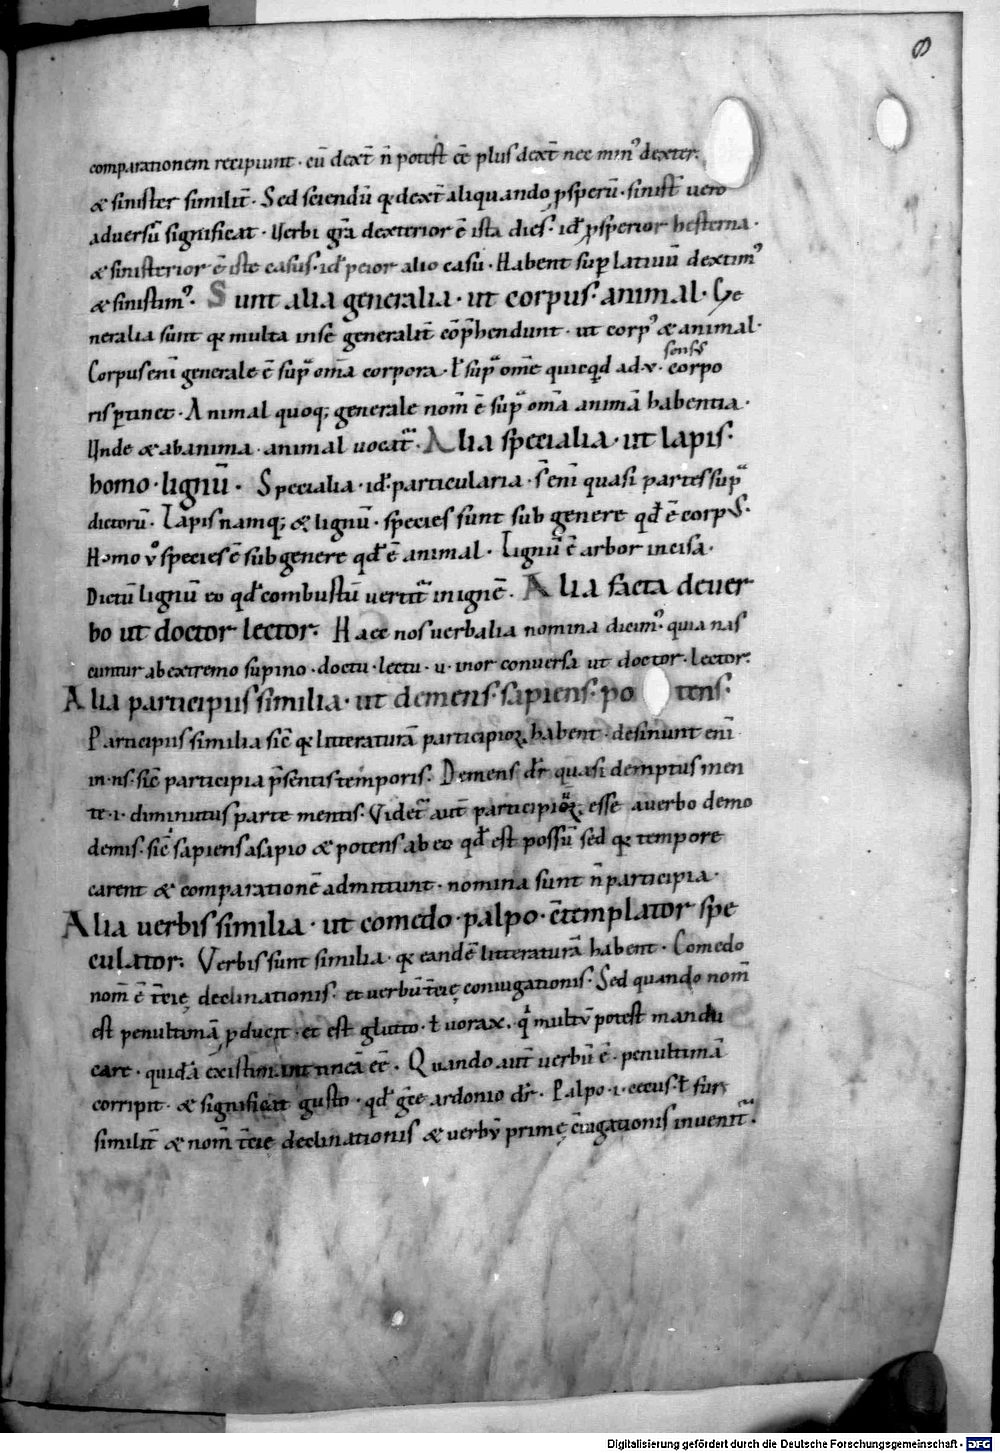 comparationem recipiunt · cũ dext̃ ñ potest ẽe plus dext̃ nec min᾿ dexter.
& sinister similit̃ · Sed sciendũ qꝫ dext̃ aliquando ꝓsperũ · sinist̃ uero
aduersũ significat · Verbi grã dexterior ẽ ista dies · id ꝓsperior hesterna ·
& sinisterior ẽ iste casus · id peior alio casu · Habent suplatiuũ dextim᾿
& sinistim᾿. Sunt alia generalia · ut corpus · animal · Ge
neralia sunt qꝫ multa inse generalit̃ cõp̃hendunt · ut corp᾿ & animal ·
Corpus enĩ generale ẽ sup omĩa corpora · ł sup omẽ quicqd ad · v · sensus corpo
ris ꝑtinet · Animal quoqꝫ generale nom̃ ẽ sup omĩa animã habentia ·
Vnde & abanima · animal uocat̃ · Alia specialia · ut lapis ·
homo · lignũ · Specialia · id · particularia · s̃ enĩ quasi partes sup
dictorũ · Lapis namqꝫ & lignũ · species sunt sub genere qđ ẽ corpus ·
Homo v̊ species ẽ sub genere qđ ẽ animal · Lignũ ẽ arbor incisa ·
Dictũ lignũ eo qđ combustũ uertit̃ in ignẽ · Alia facta deuer
bo ut doctor lector · Haec nos uerbalia nomina dicim᾿ quia nas
cuntur ab extremo supino · doctu · lectu · u · inor conuersa ut doctor · lector ·
Alia participiis similia · ut demens · sapiens · po tens ·
Participiis similia sic̃ qꝫ litteraturã participioꝝ habent · desinunt enĩ
in · ns · sic̃ participia p̃sentis temporis · Demens dr̃ quasi demptus men
te · i · diminutus parte mentis · Videt̃ aut̃ participioꝝ esse auerbo demo
demis · sic̃ sapiens a sapio & potens ab eo qđ est possũ sed qꝫ tempore
carent & comparationẽ admittunt · nomina sunt ñ participia ·
Alia uerbis similia · ut comedo · palpo · cõtemplator spe
culator · Verbis sunt similia · qꝫ eandẽ litteraturã habent · Comedo
nom̃ ẽ tc̃ię declinationis · et uerbũ tc̃ię coniugationis · Sed quando nom̃
est penultimã ꝓducit · et est glutto · ł uorax · q̊ multũ potest mandu
care · quidã existimant uncã ẽe · Quando aut̃ uerbũ ẽ · penultimã
corripit · & significat gusto · qđ gc̃e ardonio dr̃ · Palpo · i · cecus · ł fur
similit̃ & nom̃ tc̃ię declinationis & uerbũ primę cõiugationis inuenit̃ ·
Digitalisierung gefördert durch die Deutsche Forschungsgemeinschaft - DFG